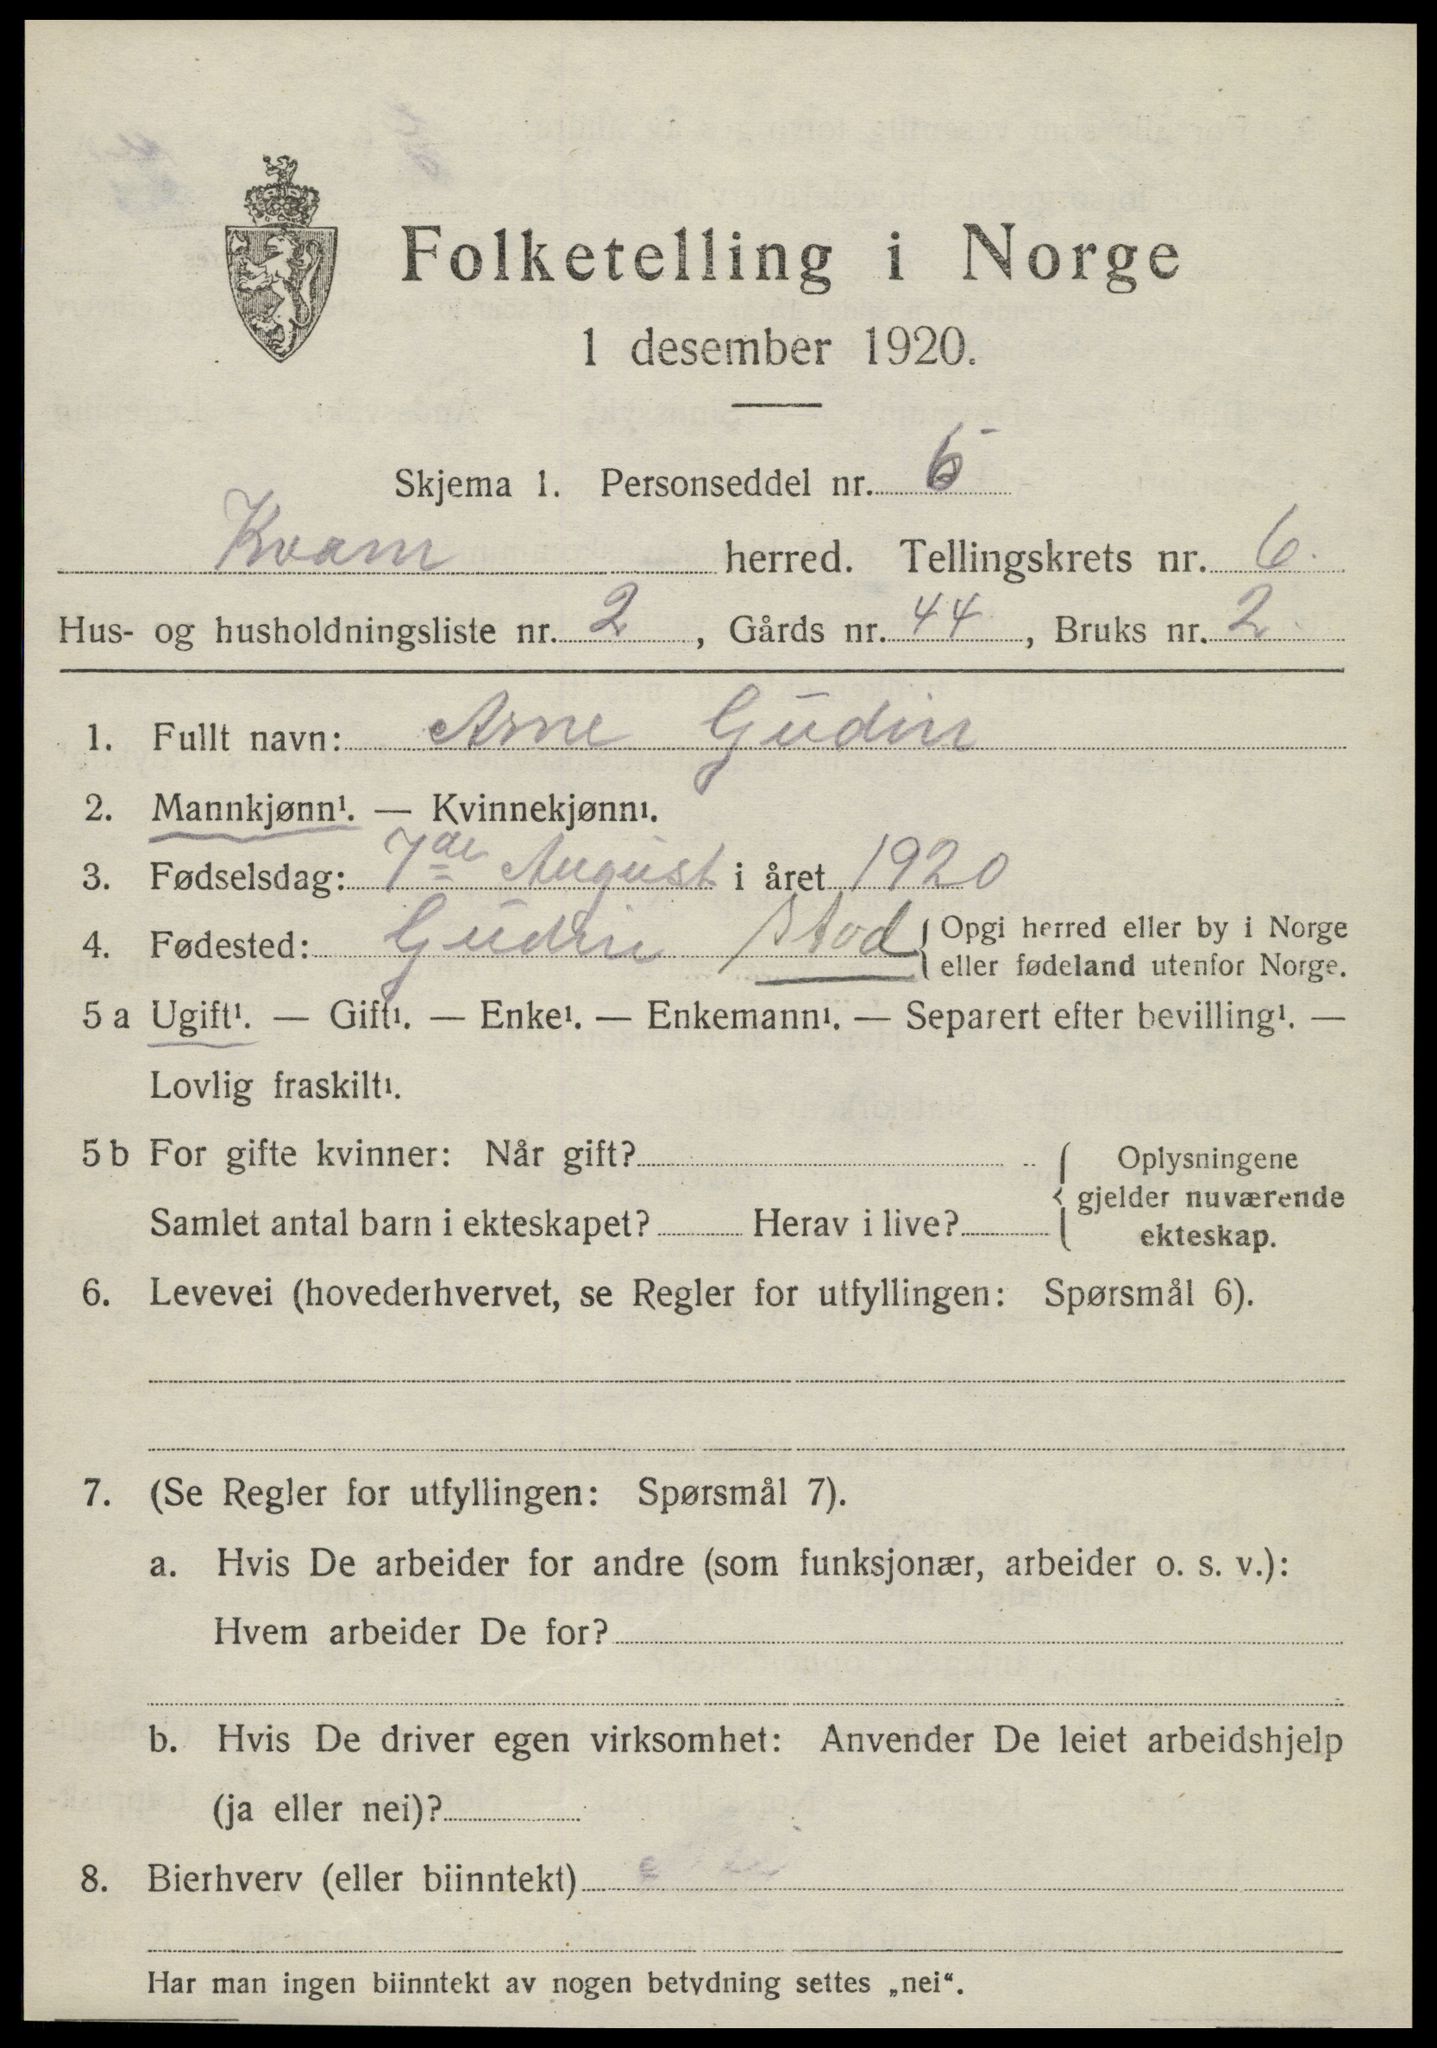 Folketelling i Norge
1 desember 1920.
Skjema 1. Personseddel nr.
Kvam herred. Tellingskrets nr. 6.
Hus- og husholdningsliste nr. 2, Gårds nr. 44, Bruks nr. 2.
1. Fullt navn: Arne Gudin
2. Mannkjønn¹. — Kvinnekjønn¹.
3. Fødselsdag: 7de August i året 1920
4. Fødested: Gudin Stod { Opgi herred eller by i Norge
eller fødeland utenfor Norge.
5 a Ugift¹. — Gift¹. — Enke¹. — Enkemann¹. — Separert efter bevilling¹. —
Lovlig fraskilt¹.
5 b For gifte kvinner: Når gift? { Oplysningene
gjelder nuværende
Samlet antal barn i ekteskapet? Herav i live?
ekteskap.
6. Levevei (hovederhvervet, se Regler for utfyllingen: Spørsmål 6).
7. (Se Regler for utfyllingen: Spørsmål 7).
a. Hvis De arbeider for andre (som funksjonær, arbeider o. s. v.):
Hvem arbeider De for?
b. Hvis De driver egen virksomhet: Anvender De leiet arbeidshjelp
(ja eller nei)?
8. Bierhverv (eller biinntekt) Nei
Har man ingen biinntekt av nogen betydning settes „nei“.